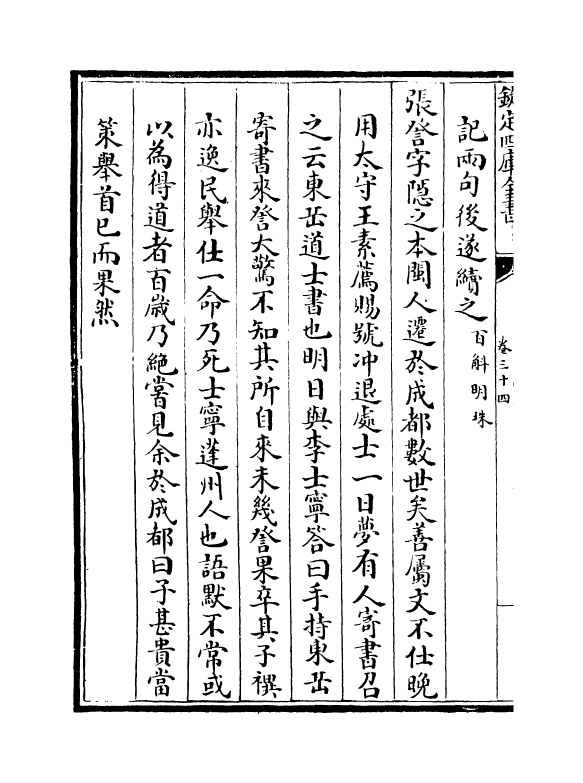 欽定四庫全書
卷三十四
記兩句後遂續之百斛明珠
張詧字隱之本閩人遷於成都數世矣善屬文不仕晚
用太守王素薦賜號冲退處士一日夢有人寄書召
之云東岳道士書也明日與李士寧答曰手持東岳
寄書來詧大驚不知其所自來未幾詧果卒其子禩
亦逸民舉仕一命乃死士寧蓬州人也語默不常或
以為得道者百歳乃絶嘗見余於成都曰子甚貴當
策舉首已而果然